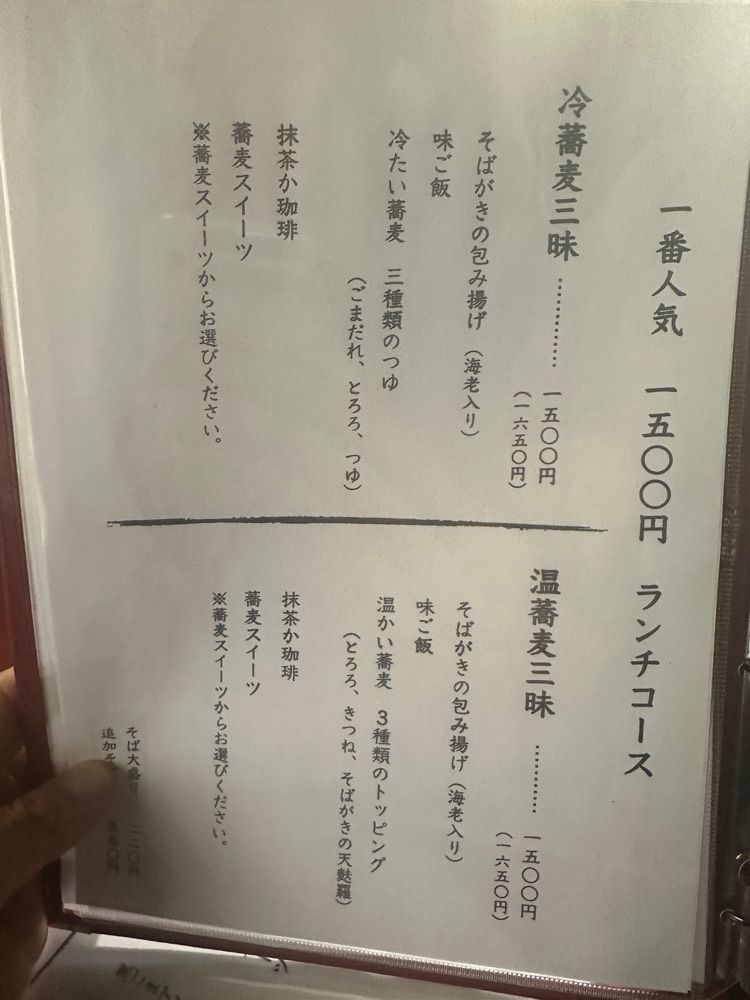 一番人気 一五〇〇円 ランチコース
冷蕎麦三昧…………一五〇〇円
(一六五〇円)
そばがきの包み揚げ(海老入り)
味ご飯
冷たい蕎麦 三種類のつゆ
(ごまだれ、とろろ、つゆ)
抹茶か珈琲
蕎麦スイーツ
※蕎麦スイーツからお選びください。
温蕎麦三昧…………一五〇〇円
(一六五〇円)
そばがきの包み揚げ(海老入り)
味ご飯
温かい蕎麦 3種類のトッピング
(とろろ、きつね、そばがきの天麩羅)
抹茶か珈琲
蕎麦スイーツ
※蕎麦スイーツからお選びください。
そば大盛り 二二〇円
追加そ 五五〇円